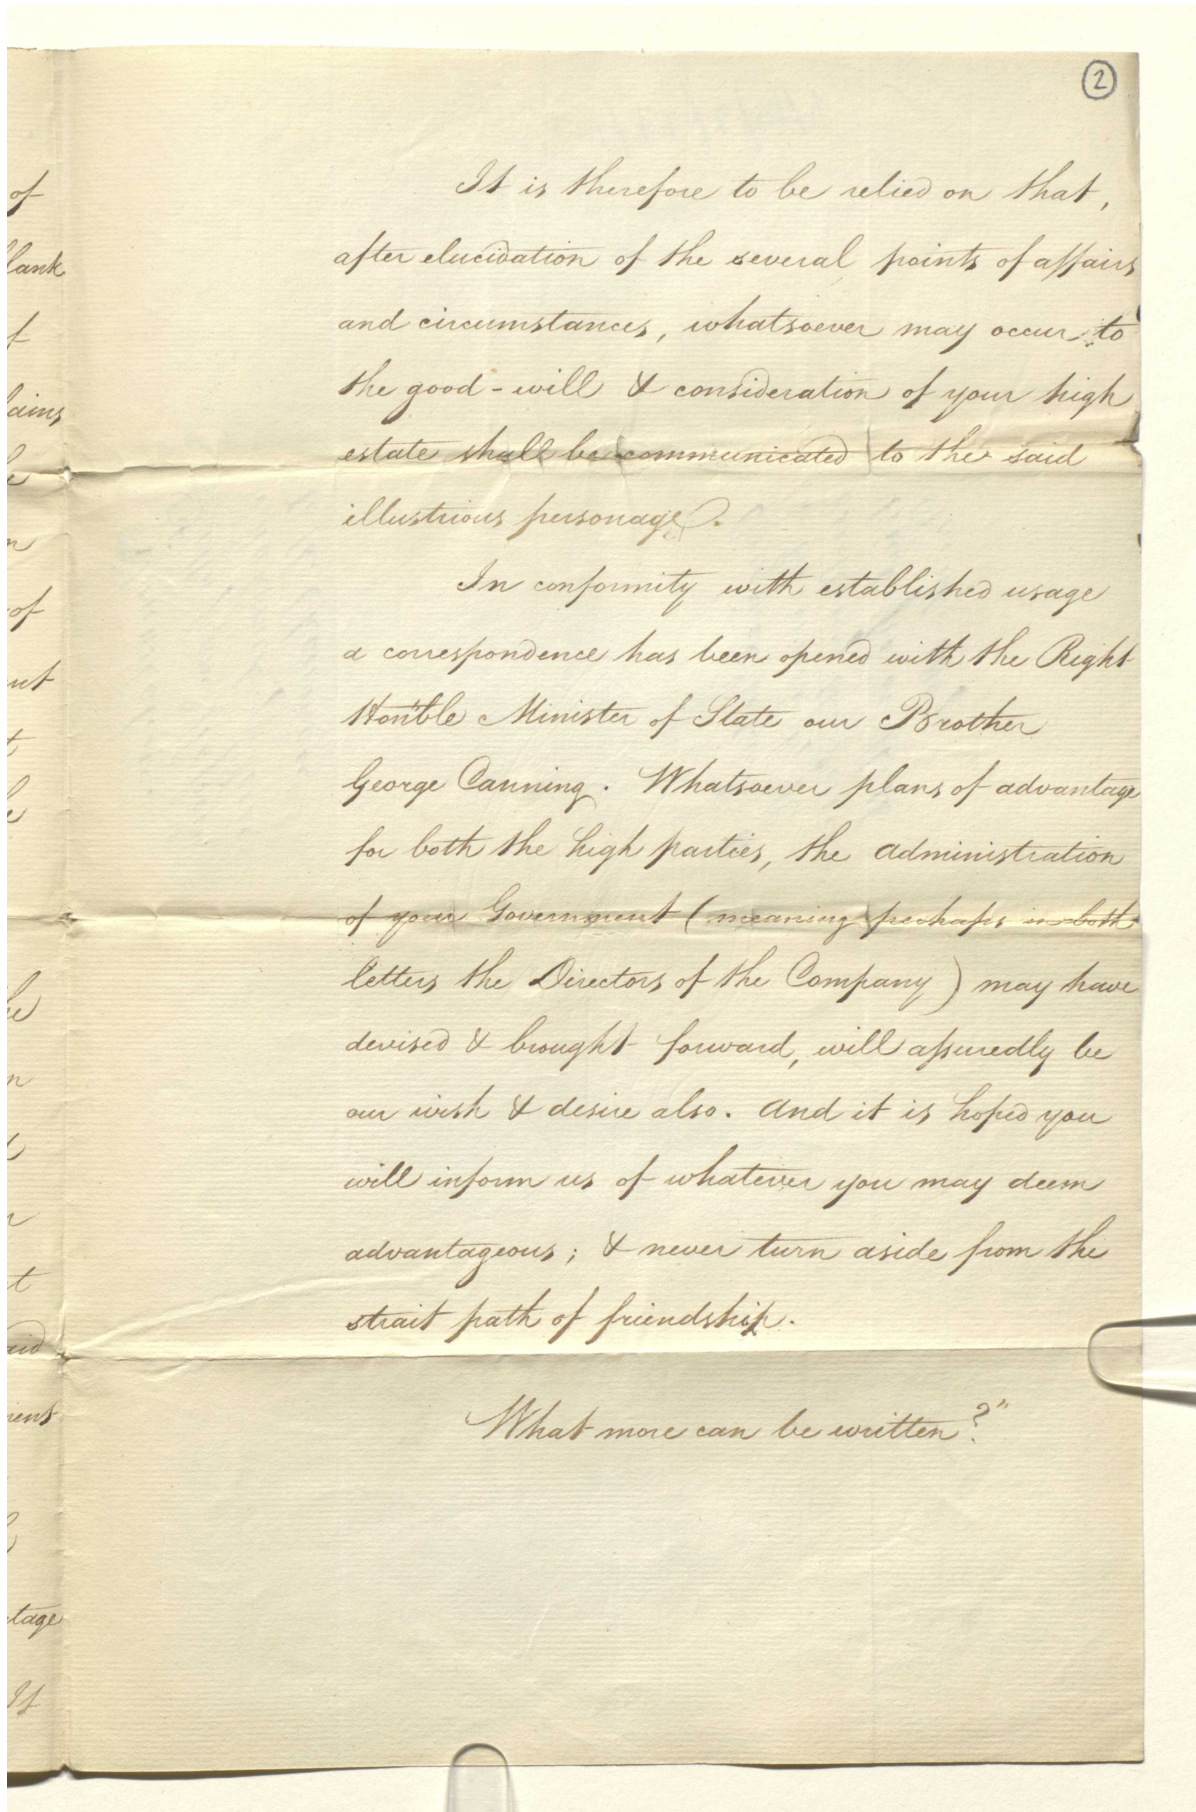 2
It is therefore to be relied on that,
after elucidation of the several points of affairs
and circumstances, whatsoever may occur to
the good-will & consideration of your high
estate shall be communicated to the said
illustrious personage.
In conformity with established usage
a correspondence has been opened with the Right
Hon'ble Minister of State our Brother
George Canning. Whatsoever plans of advantage
for both the high parties, the administration
of your Government (meaning perhaps in both
letters the Directors of the Company) may have
devised & brought forward, will assuredly be
our wish & desire also. And it is hoped you
will inform us of whatever you may deem
advantageous; & never turn aside from the
strait path of friendship.
What more can be written?"
of
lank
f
laims
of
ut
t
n
t
tage
If